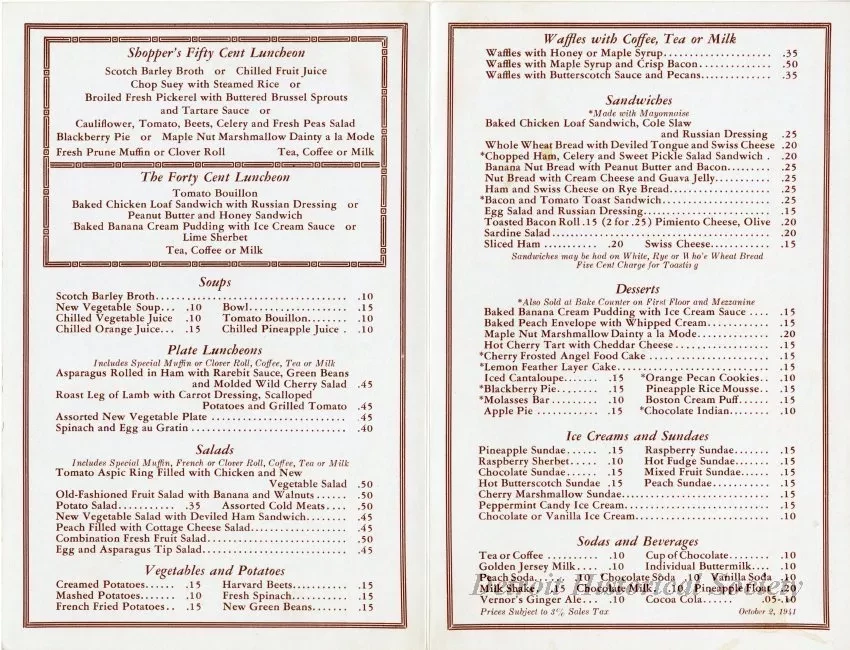 Shopper's Fifty Cent Luncheon
Scotch Barley Broth or Chilled Fruit Juice
Chop Suey with Steamed Rice or
Broiled Fresh Pickerel with Buttered Brussel Sprouts
and Tartare Sauce or
Cauliflower, Tomato, Beets, Celery and Fresh Peas Salad
Blackberry Pie or Maple Nut Marshmallow Dainty a la Mode
Fresh Prune Muffin or Clover Roll Tea, Coffee or Milk
The Forty Cent Luncheon
Tomato Bouillon
Baked Chicken Loaf Sandwich with Russian Dressing or
Peanut Butter and Honey Sandwich
Baked Banana Cream Pudding with Ice Cream Sauce or
Lime Sherbet
Tea, Coffee or Milk
Soups
Scotch Barley Broth .10
New Vegetable Soup... .10 Bowl .15
Chilled Vegetable Juice .10 Tomato Bouillon .10
Chilled Orange Juice... .15 Chilled Pineapple Juice . .10
Plate Luncheons
Includes Special Muffin or Clover Roll, Coffee, Tea or Milk
Asparagus Rolled in Ham with Rarebit Sauce, Green Beans
and Molded Wild Cherry Salad .45
Roast Leg of Lamb with Carrot Dressing, Scalloped
Potatoes and Grilled Tomato .45
Assorted New Vegetable Plate .45
Spinach and Egg au Gratin .40
Salads
Includes Special Muffin, French or Clover Roll, Coffee, Tea or Milk
Tomato Aspic Ring Filled with Chicken and New
Vegetable Salad .50
Old-Fashioned Fruit Salad with Banana and Walnuts .50
Potato Salad .35 Assorted Cold Meats .50
New Vegetable Salad with Deviled Ham Sandwich .45
Peach Filled with Cottage Cheese Salad .45
Combination Fresh Fruit Salad .50
Egg and Asparagus Tip Salad .45
Vegetables and Potatoes
Creamed Potatoes .15 Harvard Beets .15
Mashed Potatoes .10 Fresh Spinach .15
French Fried Potatoes .15 New Green Beans .15
Waffles with Coffee, Tea or Milk
Waffles with Honey or Maple Syrup .35
Waffles with Maple Syrup and Crisp Bacon .50
Waffles with Butterscotch Sauce and Pecans .35
Sandwiches
*Made with Mayonnaise
Baked Chicken Loaf Sandwich, Cole Slaw
and Russian Dressing .25
Whole Wheat Bread with Deviled Tongue and Swiss Cheese .20
*Chopped Ham, Celery and Sweet Pickle Salad Sandwich . .20
Banana Nut Bread with Peanut Butter and Bacon .25
Nut Bread with Cream Cheese and Guava Jelly .25
Ham and Swiss Cheese on Rye Bread .25
*Bacon and Tomato Toast Sandwich .25
Egg Salad and Russian Dressing .15
Toasted Bacon Roll .15 (2 for .25) Pimiento Cheese, Olive .20
Sardine Salad .20
Sliced Ham .20 Swiss Cheese .15
Sandwiches may be had on White, Rye or Who'e Wheat Bread
Five Cent Charge for Toasting
Desserts
*Also Sold at Bake Counter on First Floor and Mezzanine
Baked Banana Cream Pudding with Ice Cream Sauce .15
Baked Peach Envelope with Whipped Cream .15
Maple Nut Marshmallow Dainty a la Mode .20
Hot Cherry Tart with Cheddar Cheese .15
*Cherry Frosted Angel Food Cake .15
*Lemon Feather Layer Cake .15
Iced Cantaloupe .15 *Orange Pecan Cookies .10
*Blackberry Pie .15 Pineapple Rice Mousse .15
*Molasses Bar .10 Boston Cream Puff .15
Apple Pie .15 *Chocolate Indian .10
Ice Creams and Sundaes
Pineapple Sundae .15 Raspberry Sundae .15
Raspberry Sherbet .10 Hot Fudge Sundae .15
Chocolate Sundae .15 Mixed Fruit Sundae .15
Hot Butterscotch Sundae .15 Peach Sundae .15
Cherry Marshmallow Sundae .15
Peppermint Candy Ice Cream .15
Chocolate or Vanilla Ice Cream .10
Sodas and Beverages
Tea or Coffee .10 Cup of Chocolate .10
Golden Jersey Milk .10 Individual Buttermilk .10
Peach Soda .10 Chocolate Soda .10 Vanilla Soda .10
Milk Shake .15 Chocolate Milk .15 Pineapple Float .20
Vernor's Ginger Ale .10 Coca Cola .05-.10
Prices Subject to 3% Sales Tax October 2, 1941
Detroit Historical Society